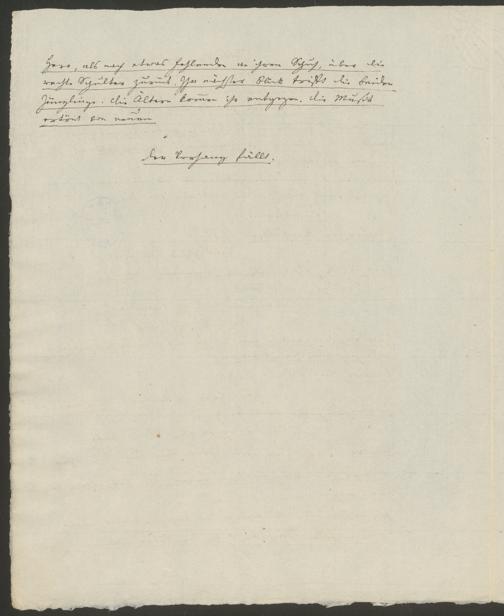 Hero, als nach etwas fehlenden an ihrem Schuh, über die
rechte Schulter zurück. Ihr nächster Blick trifft die beiden
Jünglinge. Die Ältern komen ihr entgegen. die Musik
ertönt von neuen
Der Vorhang fällt.